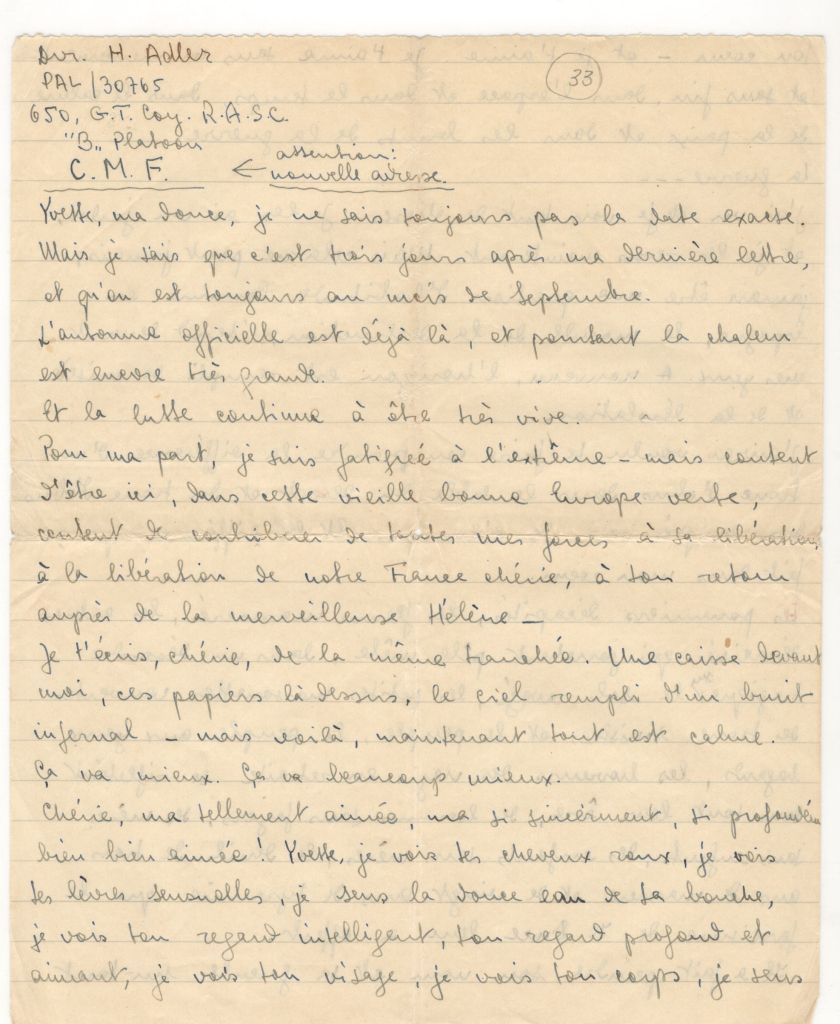 Dvr. H. Adler
PAL/30765
33
650, G.T. Coy. R.A.S.C.
"B„ Platoon
C. M. F. ← attention:
nouvelle adresse.
Yvette, ma douce, je ne sais toujours pas la date exacte.
Mais je sais que c'est trois jours après ma dernière lettre,
et qu'on est toujours au mois de Septembre.
L'automne officielle est déjà là, et pourtant la chaleur
est encore très grande.
Et la lutte continue à être très vive.
Pour ma part, je suis fatigué à l'extrême – mais content
d'être ici, dans cette vieille bonne Europe verte,
content de contribuer de toutes mes forces à sa libération,
à la libération de notre France chérie, à ton retour
auprès de la merveilleuse Hélène –
Je t'écris, chérie, de la même tranchée. Une caisse devant
moi, ces papiers là dessus, le ciel rempli d'un bruit
infernal – mais voilà, maintenant tout est calme.
Ça va mieux. Ça va beaucoup mieux.
Chérie, ma tellement aimée, ma si sincèrment, si profondém
bien bien aimée! Yvette, je vois tes cheveux roux, je vois
tes lèvres sensuelles, je sens la douce eau de ta bouche,
je vois ton regard intelligent, ton regard profond et
aimant, je vois ton visage, je vois ton corps, je sens